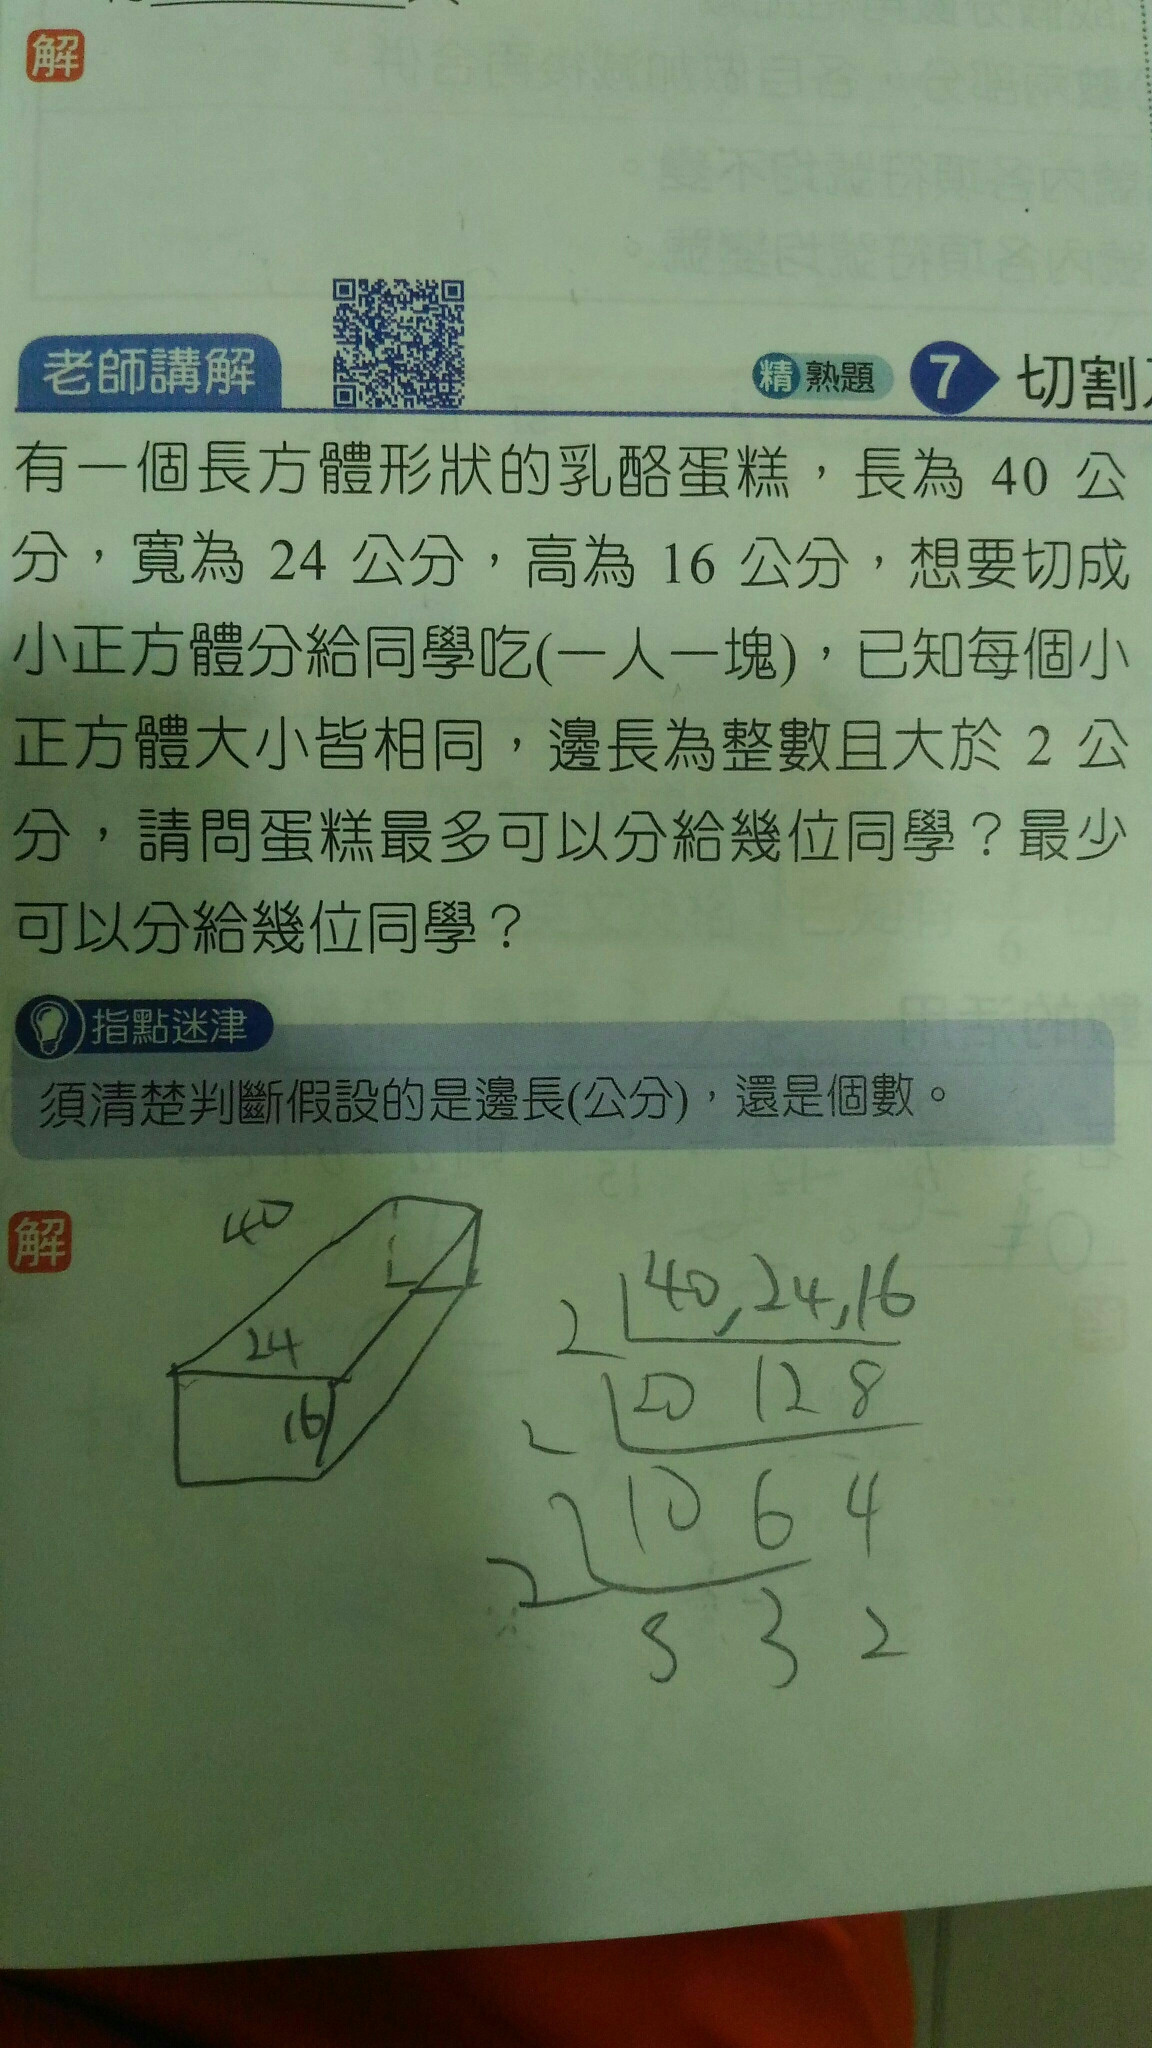 解
老師講解 精熟題 7 切割
有一個長方體形狀的乳酪蛋糕，長為 40 公
分，寬為 24 公分，高為 16 公分，想要切成
小正方體分給同學吃(一人一塊)，已知每個小
正方體大小皆相同，邊長為整數且大於 2 公
分，請問蛋糕最多可以分給幾位同學？最少
可以分給幾位同學？
指點迷津
須清楚判斷假設的是邊長(公分)，還是個數。
解
40
24
16
2 40,24,16
2 20 12 8
2 10 6 4
5 3 2